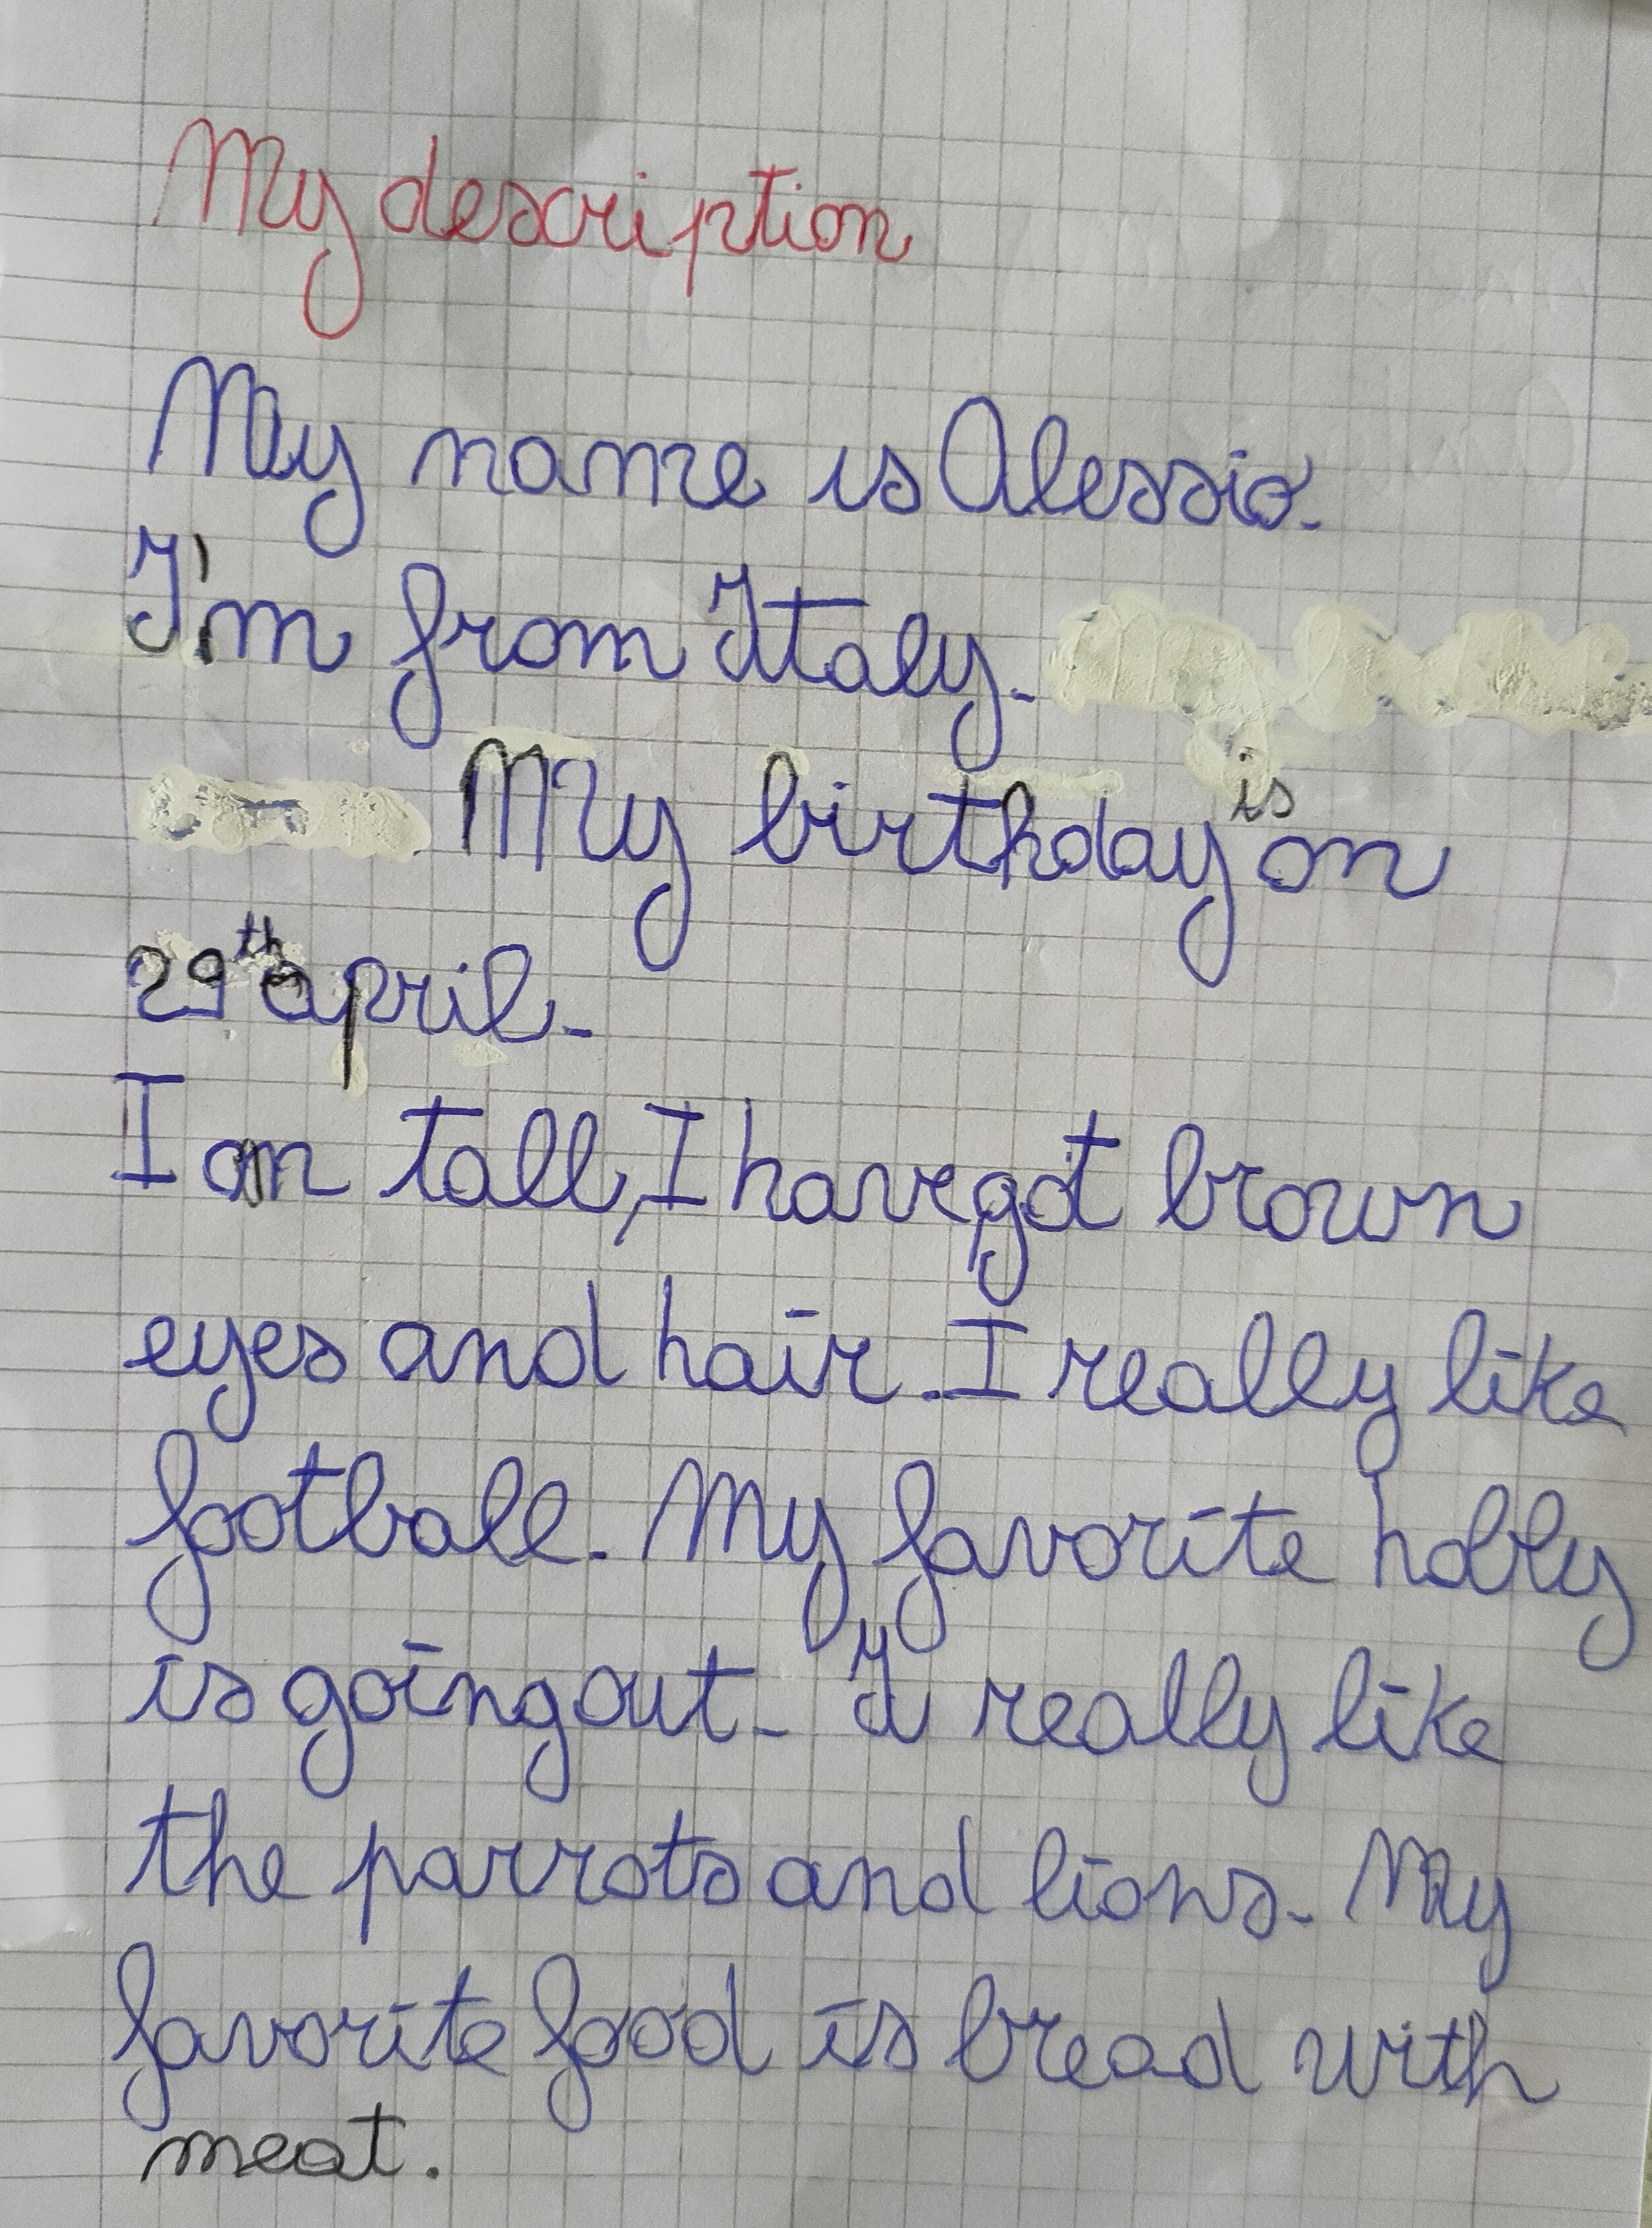 My description
My name is Alessio.
I'm from Italy.
My birthday is on
29th april.
I am tall, I have got brown
eyes and hair. I really like
football. My favorite hobby
is going out. I really like
the parrots and lions. My
favorite food is bread with
meat.